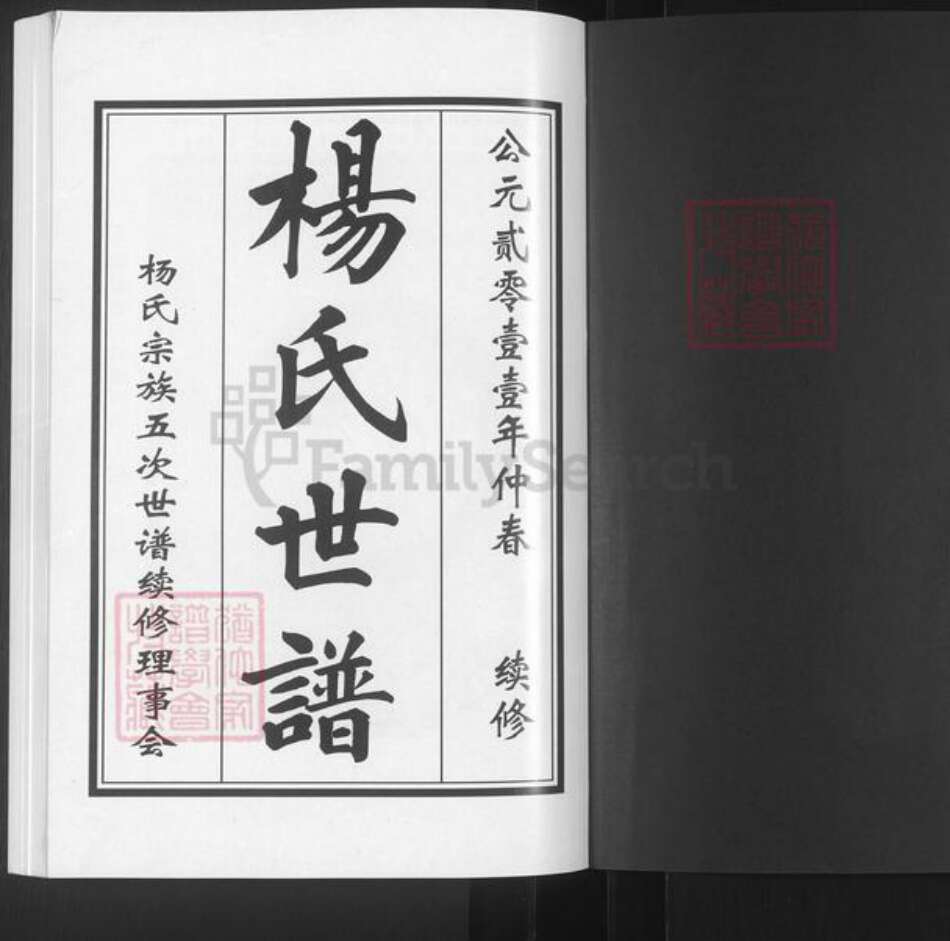 公元贰零壹壹年仲春 续修
楊氏世譜
杨氏宗族五次世谱续修理事会
FamilySearch